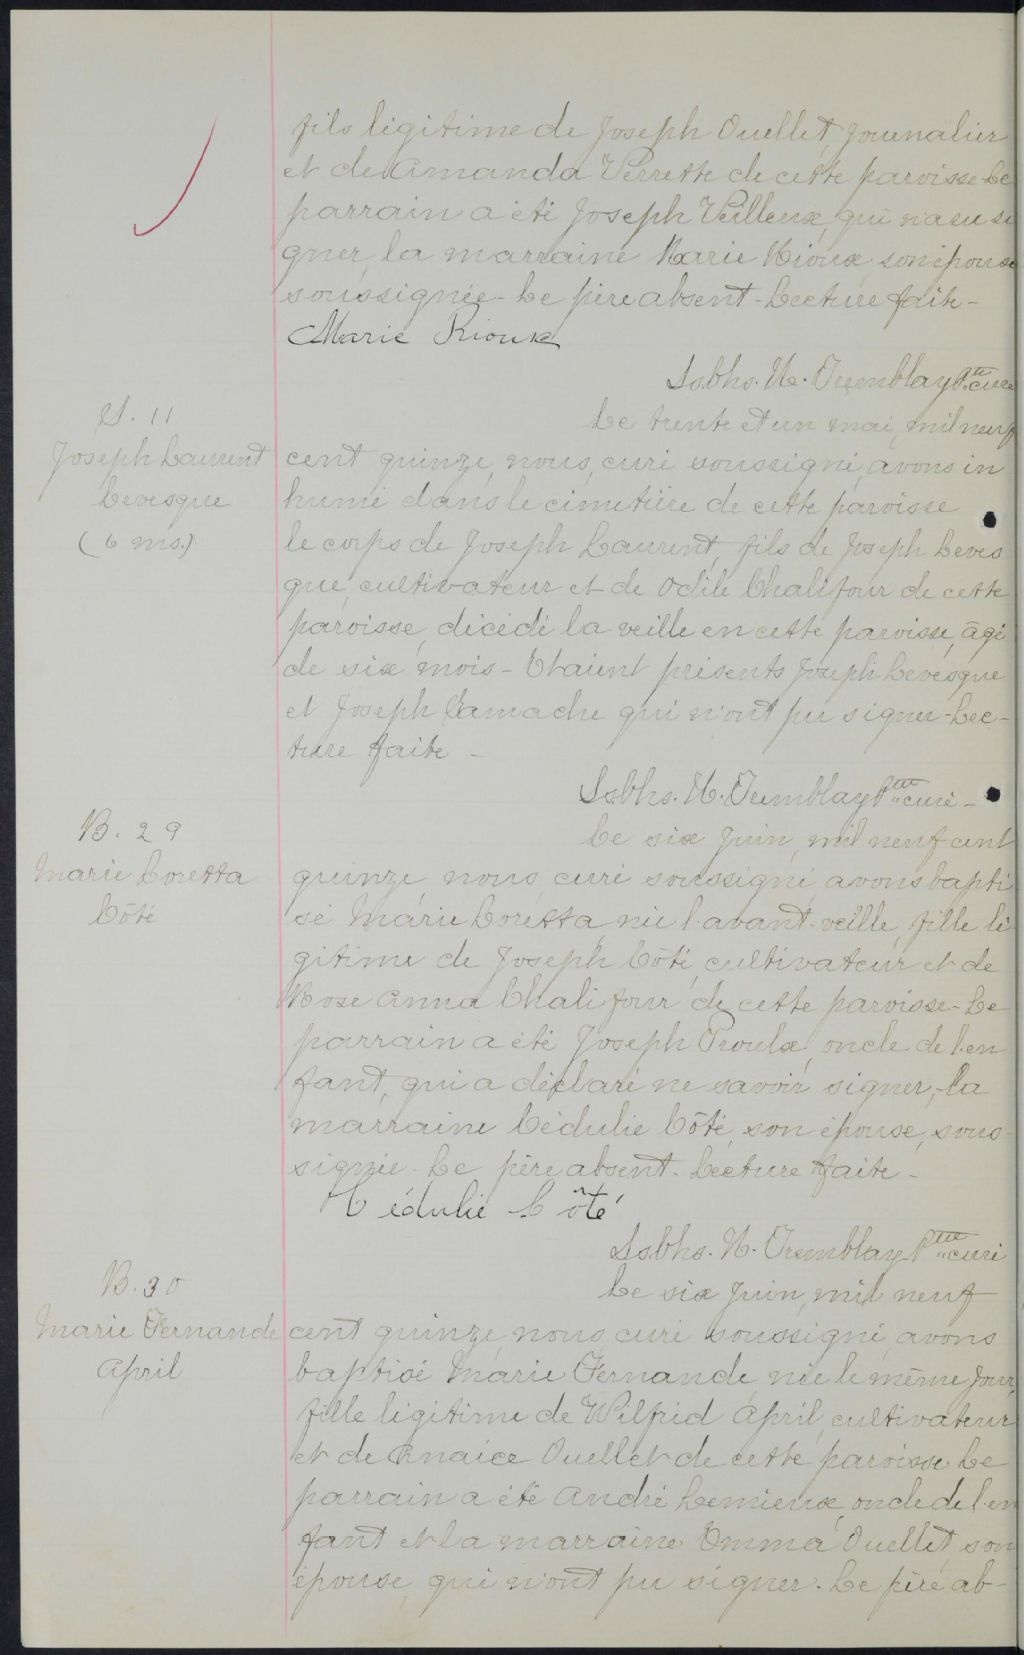 fils légitime de Joseph Ouellet, journalier
et de Amanda Verrette de cette paroisse. Le
parrain a été Joseph Veilleux, qui n'a su si
gner, la marraine Marie Rioux son épouse
soussignée - Le père absent - Lecture faite -
Marie Rioux
N. Tremblay Ptre curé
Le trente et un mai, mil neuf
S. 11
Joseph Laurent
Levesque
(6 ms.)
cent quinze, nous, curé soussigné, avons in
humé dans le cimetière de cette paroisse
le corps de Joseph Laurent, fils de Joseph Leves
que, cultivateur et de Odile Chalifour de cette
paroisse, décédé la veille en cette paroisse, âgé
de six mois - Etaient présents Joseph Levesque
et Joseph Gamache qui n'ont pu signer - Lec-
ture faite -
N. Tremblay Ptre curé -
Le six juin, mil neuf cent
B. 29
Marie Loretta
Côté
quinze, nous, curé soussigné, avons bapti
sé Marie Loretta née l'avant-veille, fille lé
gitime de Joseph Côté, cultivateur et de
Rose Anna Chalifour, de cette paroisse - Le
parrain a été Joseph Proulx, oncle de l'en
fant, qui a déclaré ne savoir signer, la
marraine Cédulie Côté, son épouse, sous-
signée - Le père absent. Lecture faite -
Cédulie Côté
N. Tremblay Ptre curé
Le six juin, mil neuf
B. 30
Marie Fernande
April
cent quinze, nous, curé soussigné, avons
baptisé Marie Fernande née le même jour,
fille légitime de Wilfrid April, cultivateur
et de Ouellet de cette paroisse Le
parrain a été André Lemieux, oncle de l'en
fant et la marraine Emma Ouellet, son
épouse, qui n'ont pu signer. Le père ab-